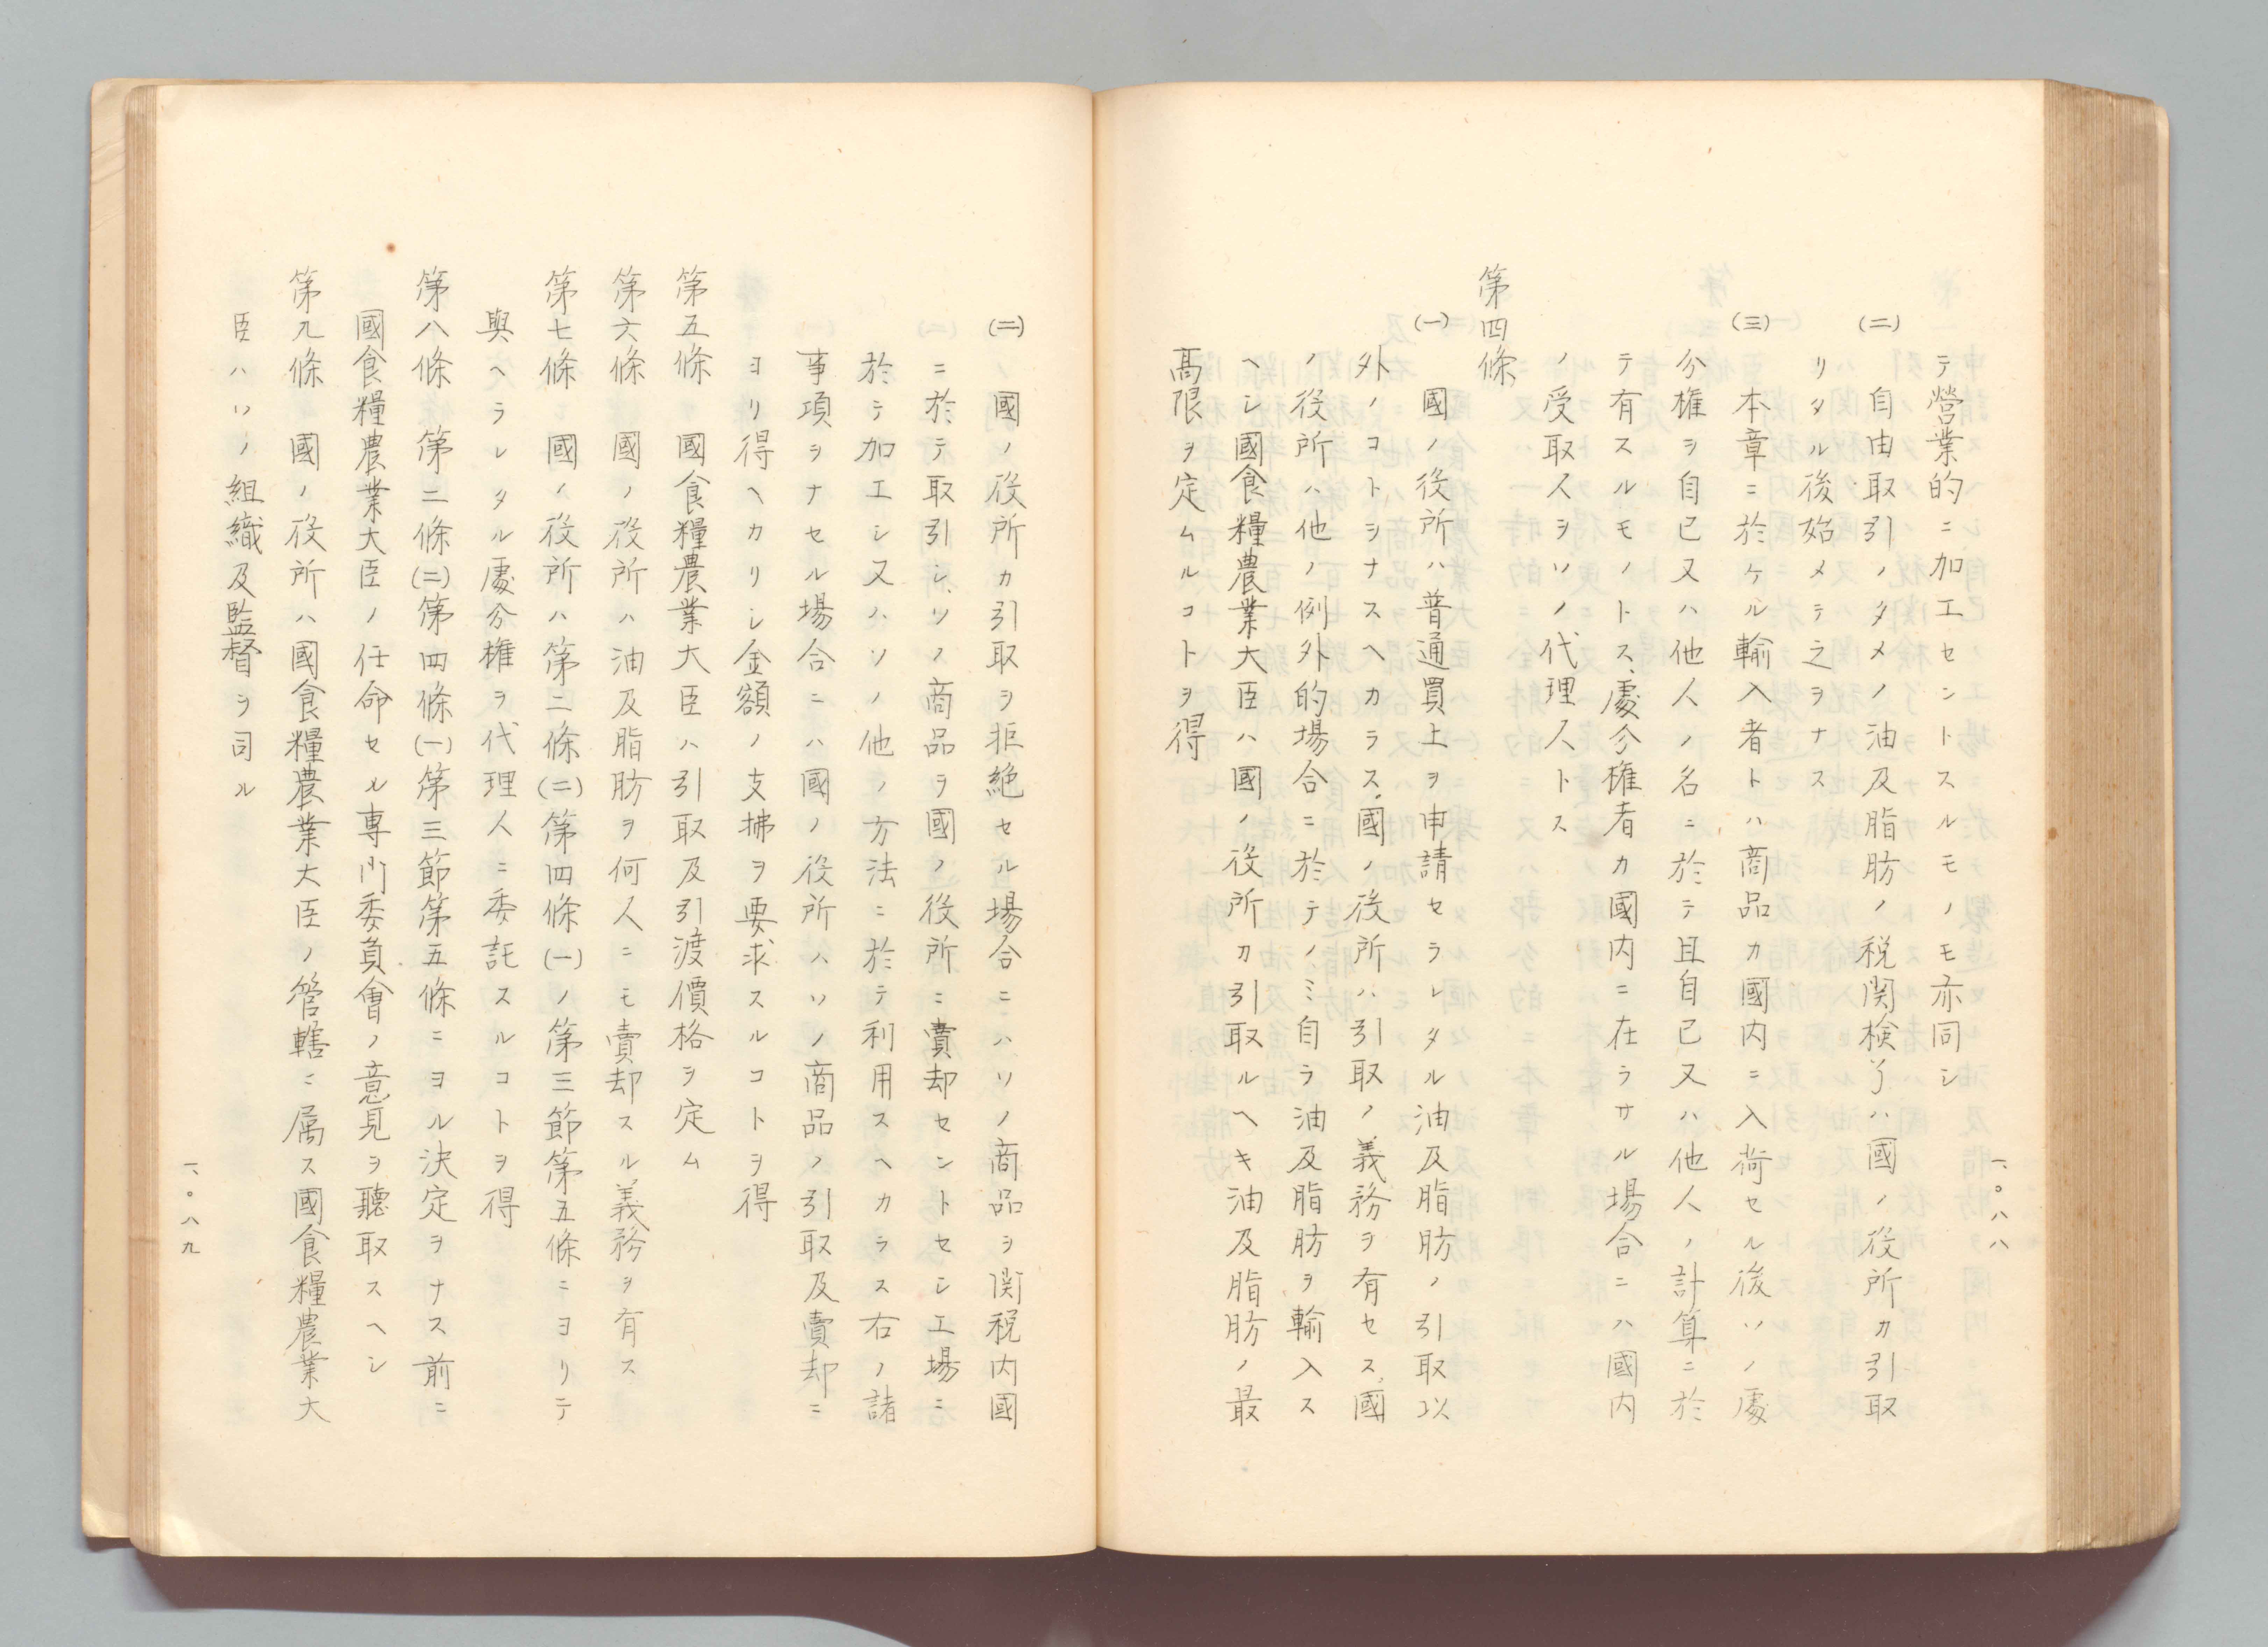 テ營業的ニ加工セントスルモノモ亦同シ
(二) 自由取引ノタメノ油及脂肪ノ税関検了ハ國ノ役所カ引取
リタル後始メテ之ヲナス
(三) 本章ニ於ケル輸入者トハ商品カ國内ニ入荷セル後ソノ處
分権ヲ自已又ハ他人ノ名ニ於テ且自已又ハ他人ノ計算ニ於
テ有スルモノトス、處分権者カ國内ニ在ラサル場合ニハ國内
ノ受取人ヲソノ代理人トス
第四條
(一) 國ノ役所ハ普通買上ヲ申請セラレタル油及脂肪ノ引取以
外ノコトヲナスヘカラス、國ノ役所ハ引取ノ義務ヲ有セス、國
ノ役所ハ他ノ例外的場合ニ於テノミ自ラ油及脂肪ヲ輸入ス
ヘシ國食糧農業大臣ハ國ノ役所カ引取ルヘキ油及脂肪ノ最
高限ヲ定ムルコトヲ得
一、〇八八
(二) 國ノ役所カ引取ヲ拒絶セル場合ニハソノ商品ヲ関税内國
ニ於テ取引シ、ソノ商品ヲ國ノ役所ニ賣却セントセシ工場ニ
於テ加工シ又ハソノ他ノ方法ニ於テ利用スヘカラス右ノ諸
事項ヲナセル場合ニハ國ノ役所ハソノ商品ノ引取及賣却ニ
ヨリ得ヘカリシ金額ノ支拂ヲ要求スルコトヲ得
第五條 國食糧農業大臣ハ引取及引渡價格ヲ定ム
第六條 國ノ役所ハ油及脂肪ヲ何人ニモ賣却スル義務ヲ有ス
第七條 國ノ役所ハ第二條(二)第四條(一)ノ第三節第五條ニヨリテ
與ヘラレタル處分權ヲ代理人ニ委託スルコトヲ得
第八條 第二條(二)第四條(一)第三節第五條ニヨル決定ヲナス前ニ
國食糧農業大臣ノ任命セル專門委員會ノ意見ヲ聽取スヘシ
第九條 國ノ役所ハ國食糧農業大臣ノ管轄ニ属ス國食糧農業大
臣ハソノ組織及監督ヲ司ル
一、〇八九